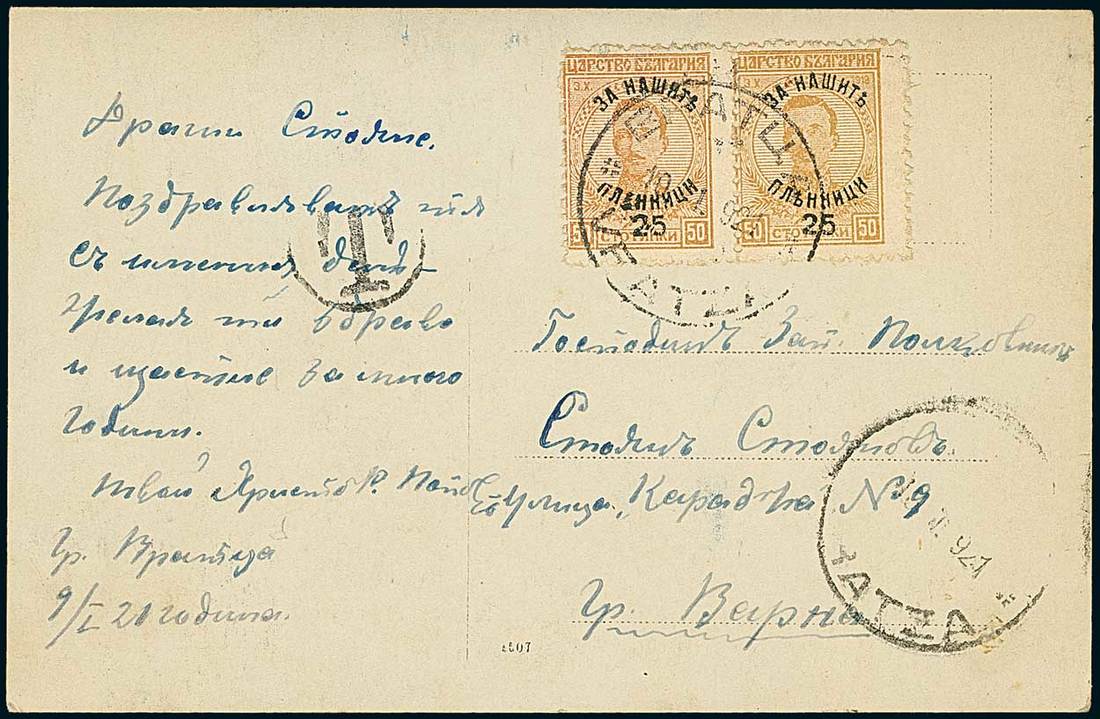 Драги Стояне.
Поздравлявамъ тия
съ именния день
желая ти здраве
и щастие за много
години.
Христо Р.
гр. Вратца
9/I 20 година.
T
ЦАРСТВО БЪЛГАРИЯ
ЗА НАШИТѢ
ПЛѢННИЦИ
25
50 СТОТИНКИ 50
ЦАРСТВО БЪЛГАРИЯ
ЗА НАШИТѢ
ПЛѢННИЦИ
25
50 СТОТИНКИ 50
ВРАТЦА
VRATZA
Господинъ Зап. Полковникъ
Стоянъ Стояновъ
Улица Караджа №9
гр. Варна
RATZA